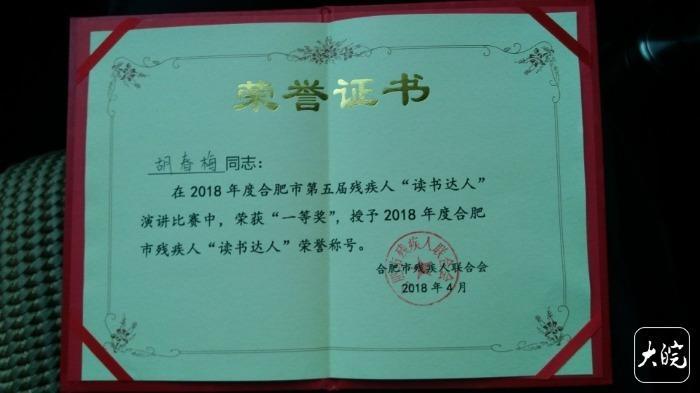 荣誉证书
胡春梅同志：
在2018年度合肥市第五届残疾人“读书达人”
演讲比赛中，荣获“一等奖”，授予2018年度合肥
市残疾人“读书达人”荣誉称号。
合肥市残疾人联合会
2018年4月
大皖